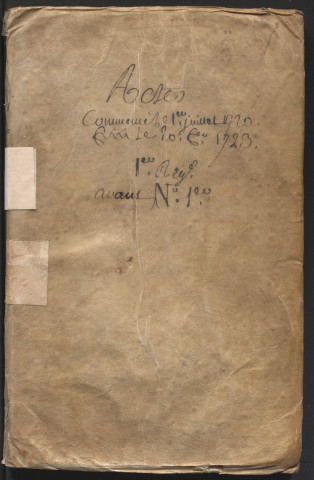 Actes
Commencé le 1er juillet 1720.
Fini le 20e 1723.
1er Regre.
avant No. 1er